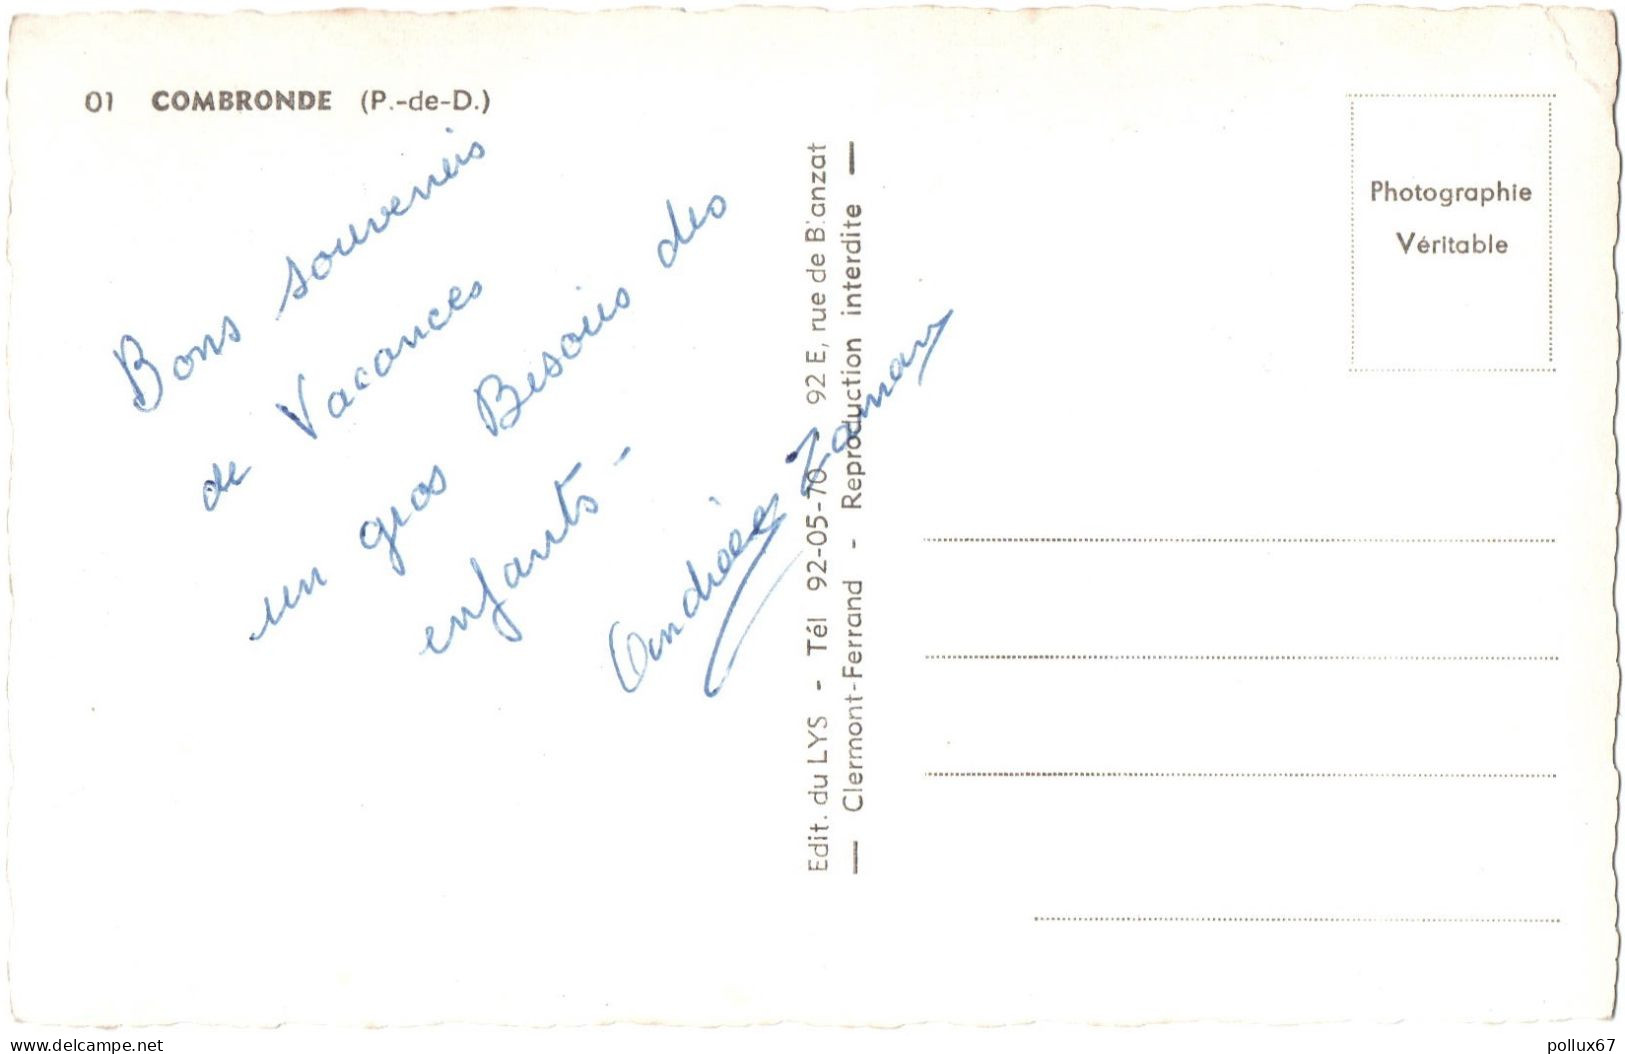 01 COMBRONDE (P.-de-D.)
Bons souvenirs
de Vacances
un gros Besoius des
enfants -
Andrée
Edit. du LYS - Tél 92-05-70 92 E, rue de B.anzat
— Clermont-Ferrand - Reproduction interdite —
Photographie
Véritable
www.delcampe.net
pollux67